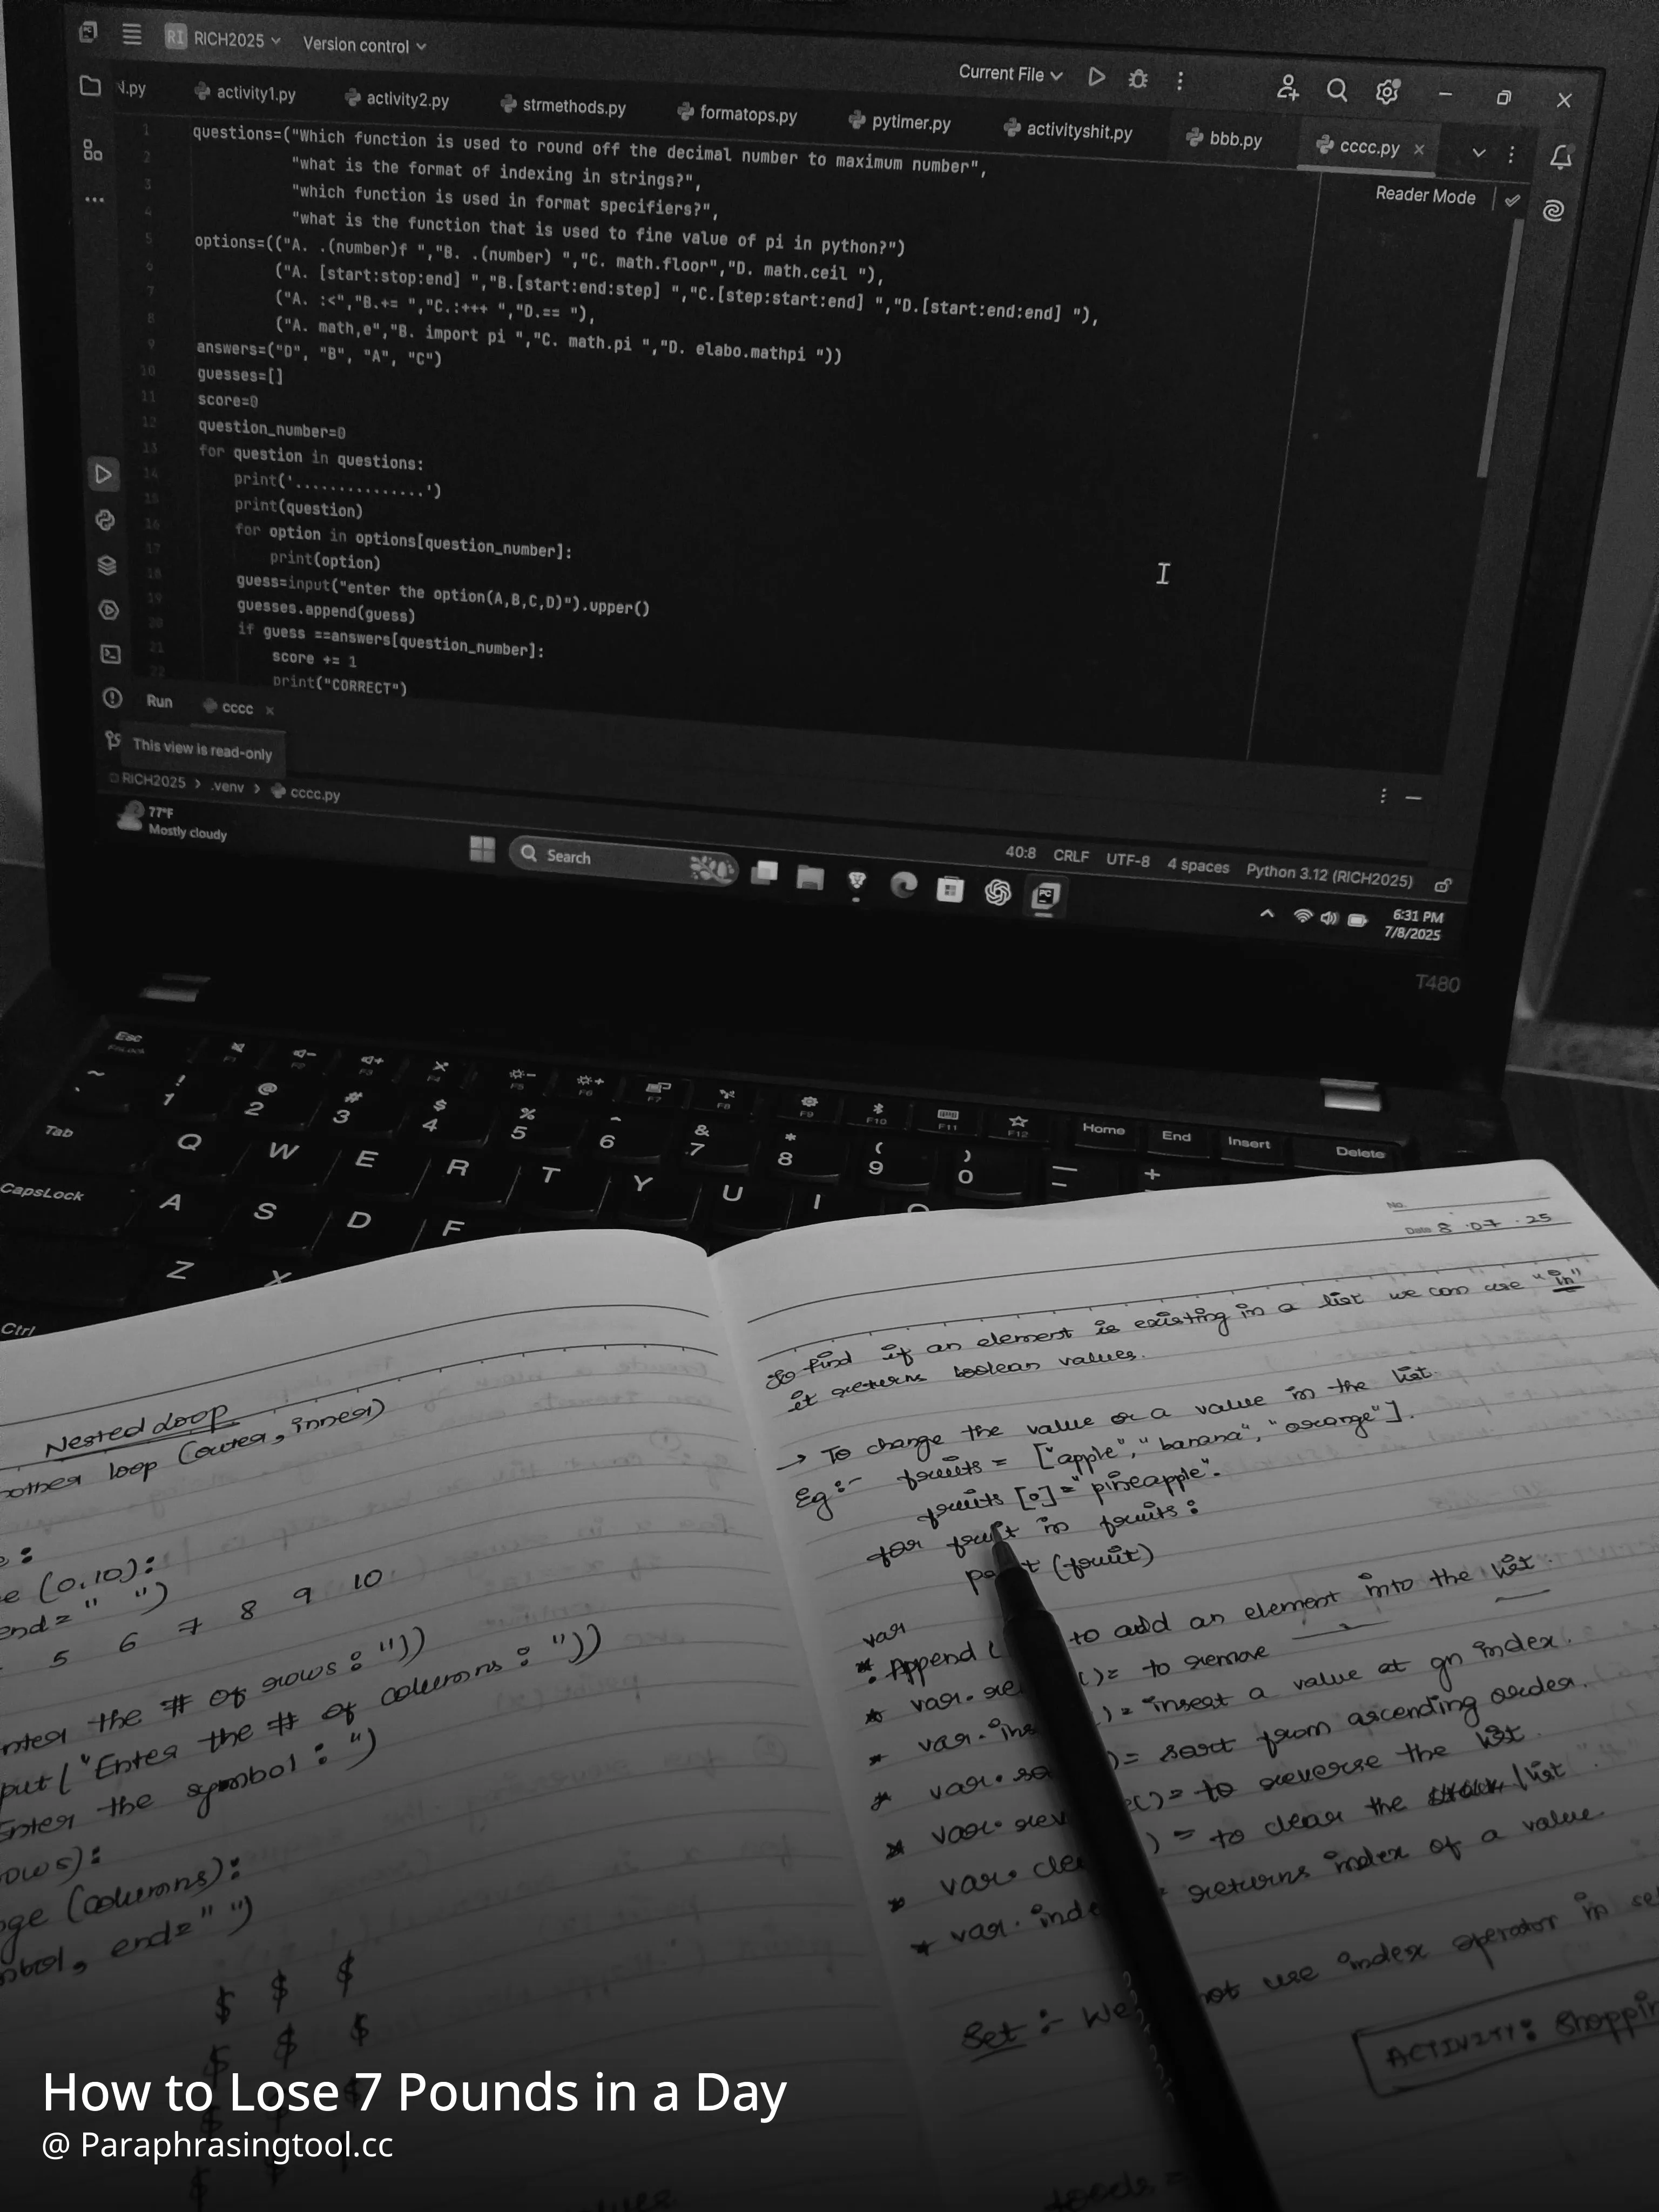 RI RICH2025 Version control Current File
N.py activity1.py activity2.py strmethods.py formatops.py pytimer.py activityshit.py bbb.py cccc.py
Reader Mode
1 questions=("Which function is used to round off the decimal number to maximum number",
2 "what is the format of indexing in strings?",
3 "which function is used in format specifiers?",
4 "what is the function that is used to fine value of pi in python?")
5 options=(("A. .(number)f ","B. .(number) ","C. math.floor","D. math.ceil "),
6 ("A. [start:stop:end] ","B.[start:end:step] ","C.[step:start:end] ","D.[start:end:end] "),
7 ("A. :<","B.+= ","C.:+++ ","D.== "),
8 ("A. math,e","B. import pi ","C. math.pi ","D. elabo.mathpi "))
9 answers=("D", "B", "A", "C")
10 guesses=[]
11 score=0
12 question_number=0
13 for question in questions:
14 print('...............')
15 print(question)
16 for option in options[question_number]:
17 print(option)
18 guess=input("enter the option(A,B,C,D)").upper()
19 guesses.append(guess)
20 if guess ==answers[question_number]:
21 score += 1
22 print("CORRECT")
Run cccc
This view is read-only
RICH2025 > .venv > cccc.py
40:8 CRLF UTF-8 4 spaces Python 3.12 (RICH2025)
77°F
Mostly cloudy
Search
6:31 PM
7/8/2025
T480
Esc F1 F2 F3 F4 F5 F6 F7 F8 F9 F10 F11 F12 Home End Insert Delete
~ ` ! 1 @ 2 # 3 $ 4 % 5 ^ 6 & 7 * 8 ( 9 ) 0 — + =
Tab Q W E R T Y U I O
CapsLock A S D F
Z X
Ctrl
Nested Loop
another loop (outer, inner)
e :
e (0,10):
end=" ")
5 6 7 8 9 10
nter the # of rows : "))
put("Enter the # of columns : "))
Enter the symbol : ")
ows):
nge (columns):
mbol, end=" ")
$ $ $
$ $ $
No.
Date 8 . 07 . 25
To find if an element is existing in a list we can use "in"
it returns boolean values.
→ To change the value or a value in the list.
Eg:- fruits = ["apple", "banana", "orange"].
fruits [0]="pineapple".
for fruit in fruits:
(fruit)
var
* Append ( to add an element into the list.
* var. re ()= to remove
* var. ins )= insert a value at gn index.
* var. so )= sort from ascending order.
* var. rev e()= to reverse the list.
* var. cle ) = to clear the stack/list.
* var. inde returns index of a value.
Set :- We not use index operator in se
ACTIVITY: Shoppin
How to Lose 7 Pounds in a Day
@ Paraphrasingtool.cc